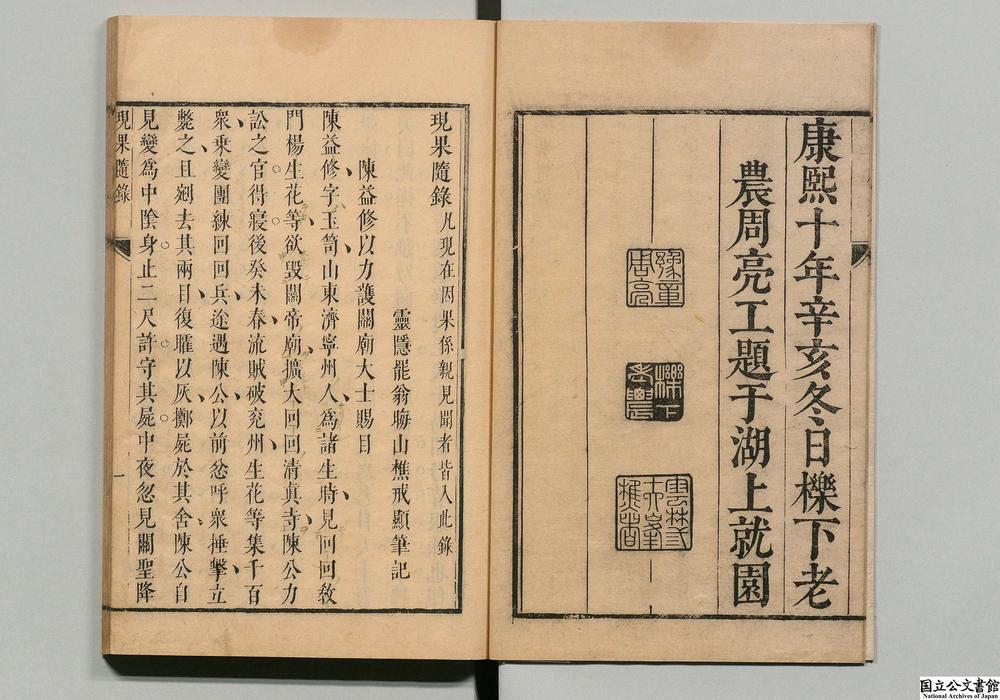 康熙十年辛亥冬日櫟下老
農周亮工題于湖上就園
現果隨錄凡現在因果係親見聞者皆入此錄
靈隱龍翁晦山樵戒顯筆記
陳益修以力護關廟大士賜目
陳益修字玉笥山東濟寧州人為諸生時見回回教
門楊生花等欲毀關帝廟擴大回回清真寺陳公力
訟之官得寢後癸未春流賊破兗州生花等集千百
衆乗變團練回回兵途遇陳公以前忿呼衆捶擊立
斃之且剜去其兩目復䑛以灰擲屍於其舍陳公自
見變為中陰身止二尺許守其屍中夜忽見關聖降
現果隨錄
一
国立公文書館
National Archives of Japan